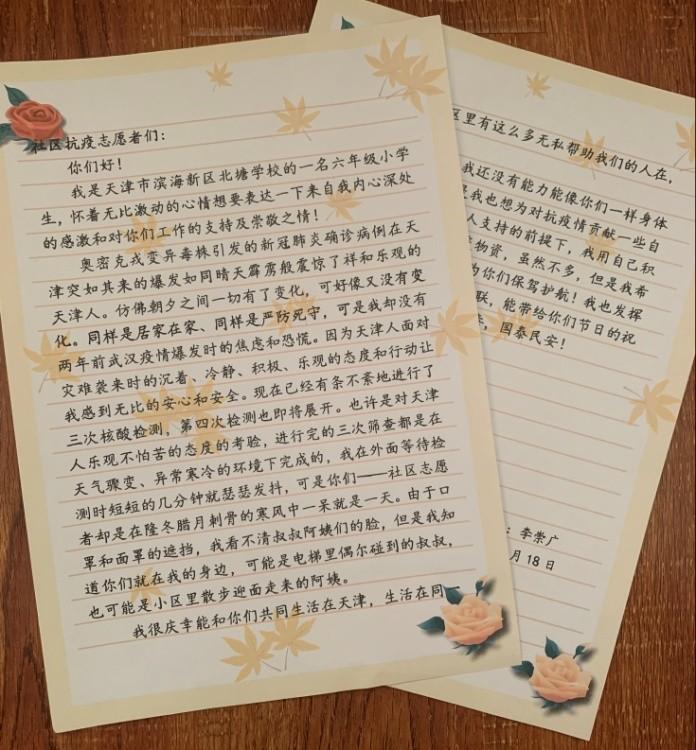 社区抗疫志愿者们：
你们好！
我是天津市滨海新区北塘学校的一名六年级小学
生，怀着无比激动的心情想要表达一下来自我内心深处
的感激和对你们工作的支持及崇敬之情！
奥密克戎变异毒株引发的新冠肺炎确诊病例在天
津突如其来的爆发如同晴天霹雳般震惊了祥和乐观的
天津人。仿佛朝夕之间一切有了变化，可好像又没有变
化。同样是居家在家、同样是严防死守，可是我却没有
两年前武汉疫情爆发时的焦虑和恐慌。因为天津人面对
灾难袭来时的沉着、冷静、积极、乐观的态度和行动让
我感到无比的安心和安全。现在已经有条不紊地进行了
三次核酸检测，第四次检测也即将展开。也许是对天津
人乐观不怕苦的态度的考验，进行完的三次筛查都是在
天气骤变、异常寒冷的环境下完成的，我在外面等待检
测时短短的几分钟就瑟瑟发抖，可是你们——社区志愿
者却是在隆冬腊月刺骨的寒风中一呆就是一天。由于口
罩和面罩的遮挡，我看不清叔叔阿姨们的脸，但是我知
道你们就在我的身边，可能是电梯里偶尔碰到的叔叔，
也可能是小区里散步迎面走来的阿姨。
我很庆幸能和你们共同生活在天津，生活在同
区里有这么多无私帮助我们的人在，
我还没有能力能像你们一样身体
是我也想为对抗疫情贡献一些自
人支持的前提下，我用自己积
物资，虽然不多，但是我希
为你们保驾护航！我也发挥
联，能带给你们节日的祝
国泰民安！
：李崇广
月18日